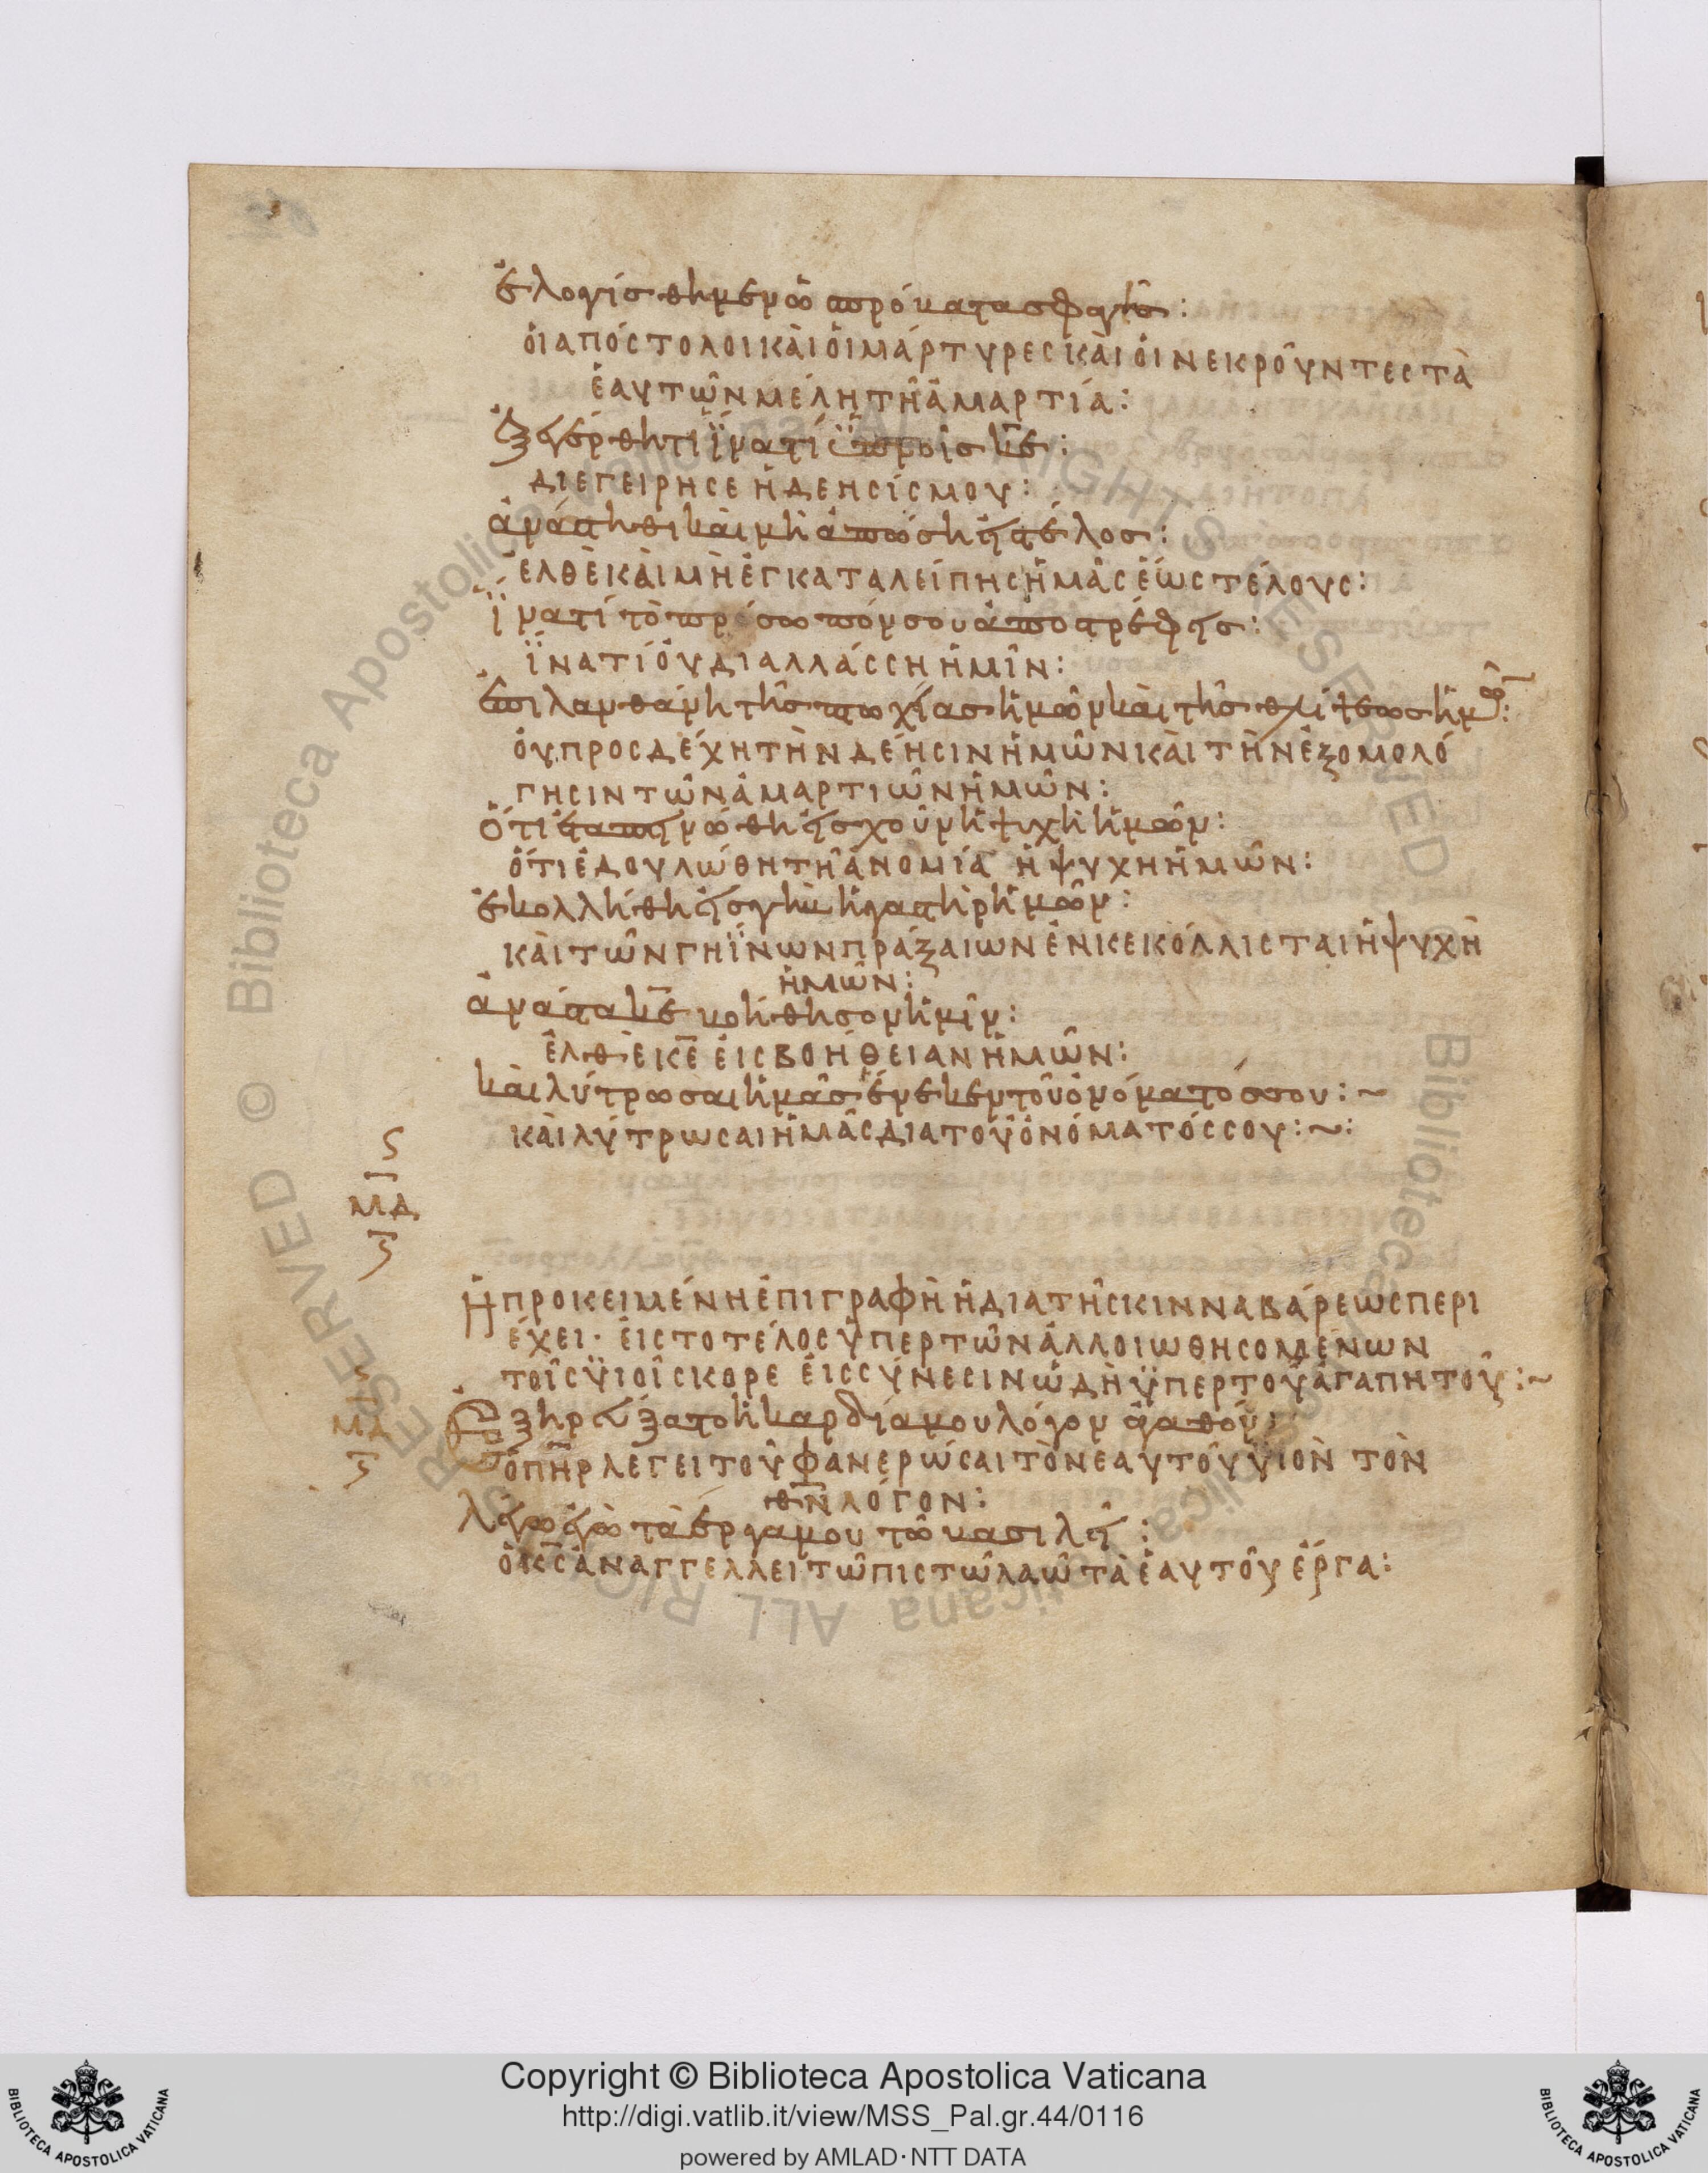 ἐλογίσθημεν ὡ πρόβατα σφαγῆσ:
ὁι ἀπόστολοι κὰι ὁι μάρτυρες κὰι ὁι νεκροῦντες τὰ
ἑαυτῶν μέλη τῆ ἁμαρτία:
Ἐξεγέρθητι ϊνατί ϋπνοῖσ κ̅ε̅:
διεγειρησε ἡ δεησίς μου:
ἀνάστηθι κὰι μὴ ἀπώση εἰς τέλοσ:
ἐλθὲ κὰι μὴ ἐγκαταλείπης ἡμᾶς ἑώς τέλους:
ϊνατί τὸ πρόσωπόν σου ἀποστρέφεισ:
ϊνατί ὀυ διαλλάσση ἡμῖν:
ἐπιλανθάνη τῆσ πτωχίασ ἡμῶν κὰι τῆσ θλίψεωσ ἡμῶν:
ὀυ προσδέχη τὴν δέησιν ἡμῶν κὰι τὴν ἐξομολό
γησιν τῶν ἁμαρτιῶν ἡμῶν:
Ὅτι ἐταπεινώθη εἰσ χοῦν ἡ ψυχὴ ἡμῶν:
ὅτι ἐδουλώθη τῆ ἀνομία ἡ ψυχη ἡμῶν:
ἐκολλήθη εἰσ γὴν ἡ γαστὴρ ἡμῶν:
κὰι τῶν γηΐνων πράξαιων ἐνικεικόλλισται ἡ ψυχὴ
ἡμῶν:
ἀνάστα κ̅ε̅ βοήθησον ἡμῖν:
ἐλθὲ ικ̅ε̅ ἐις βοήθειαν ἡμῶν:
κὰι λύτρωσαι ἡμᾶσ ἕνεκεν τοῦ ὀνόματόσ σου:~
κὰι λύτρωσαι ἡμᾶς δια τοῦ ὀνόματός σου:~:
ς
ΜΔ
ξ
Ἡ προκειμένη ἐπιγραφὴ ἡ δια τῆς κινναβάρεως περι
έχει· ἐις το τέλος ὑπερ τῶν ἀλλοιωθησομένων
τοῖς ϋιοῖς κορε ἐις σύνεσιν ὠδὴ ϋπερ τοῦ ἀγαπητοῦ:~
ς
ΜΔ
ξ
Ἐξηρεύξατο ἡ καρδία μου λόγον ἀγαθόν:
ὁ π̅η̅ρ λέγει τοῦ φανερώσαι τὸν εαυτοῦ ϋιὸν τὸν
θ̅ν̅ λόγον:
λέγω ἐγὼ τὰ ἔργα μου τῶ βασιλεῖ:
ὁ κ̅ς̅ ἀναγγέλλει τῶ πιστῶ λαῶ τὰ ἑαυτοῦ ἔργα:
Copyright © Biblioteca Apostolica Vaticana
http://digi.vatlib.it/view/MSS_Pal.gr.44/0116
powered by AMLAD·NTT DATA